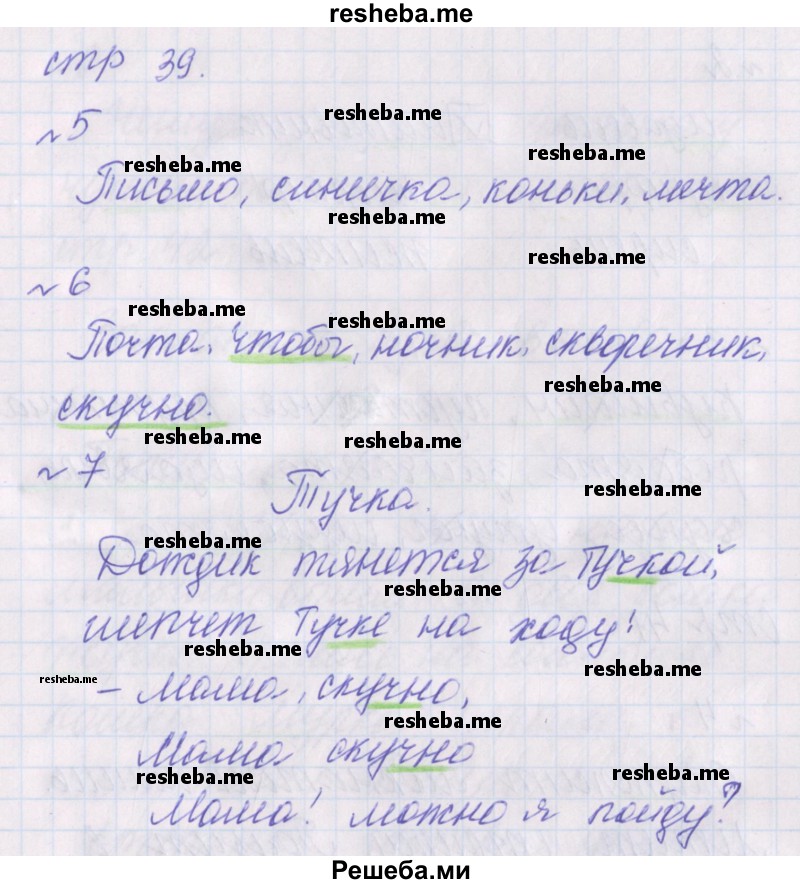 resheba.me
стр 39.
resheba.me
№5
resheba.me
resheba.me
Письмо, синичка, коньки, мечта.
resheba.me
resheba.me
№6
resheba.me
resheba.me
Почта, чтобы, ночник, скворечник,
resheba.me
скучно.
resheba.me
resheba.me
№7
Тучка.
resheba.me
resheba.me
Дождик тянется за Тучкой,
resheba.me
шепчет Тучке на ходу!
resheba.me
resheba.me
resheba.me
– Мама, скучно,
resheba.me
Мама скучно
resheba.me
resheba.me
Мама! можно я пойду?
Решеба.ми